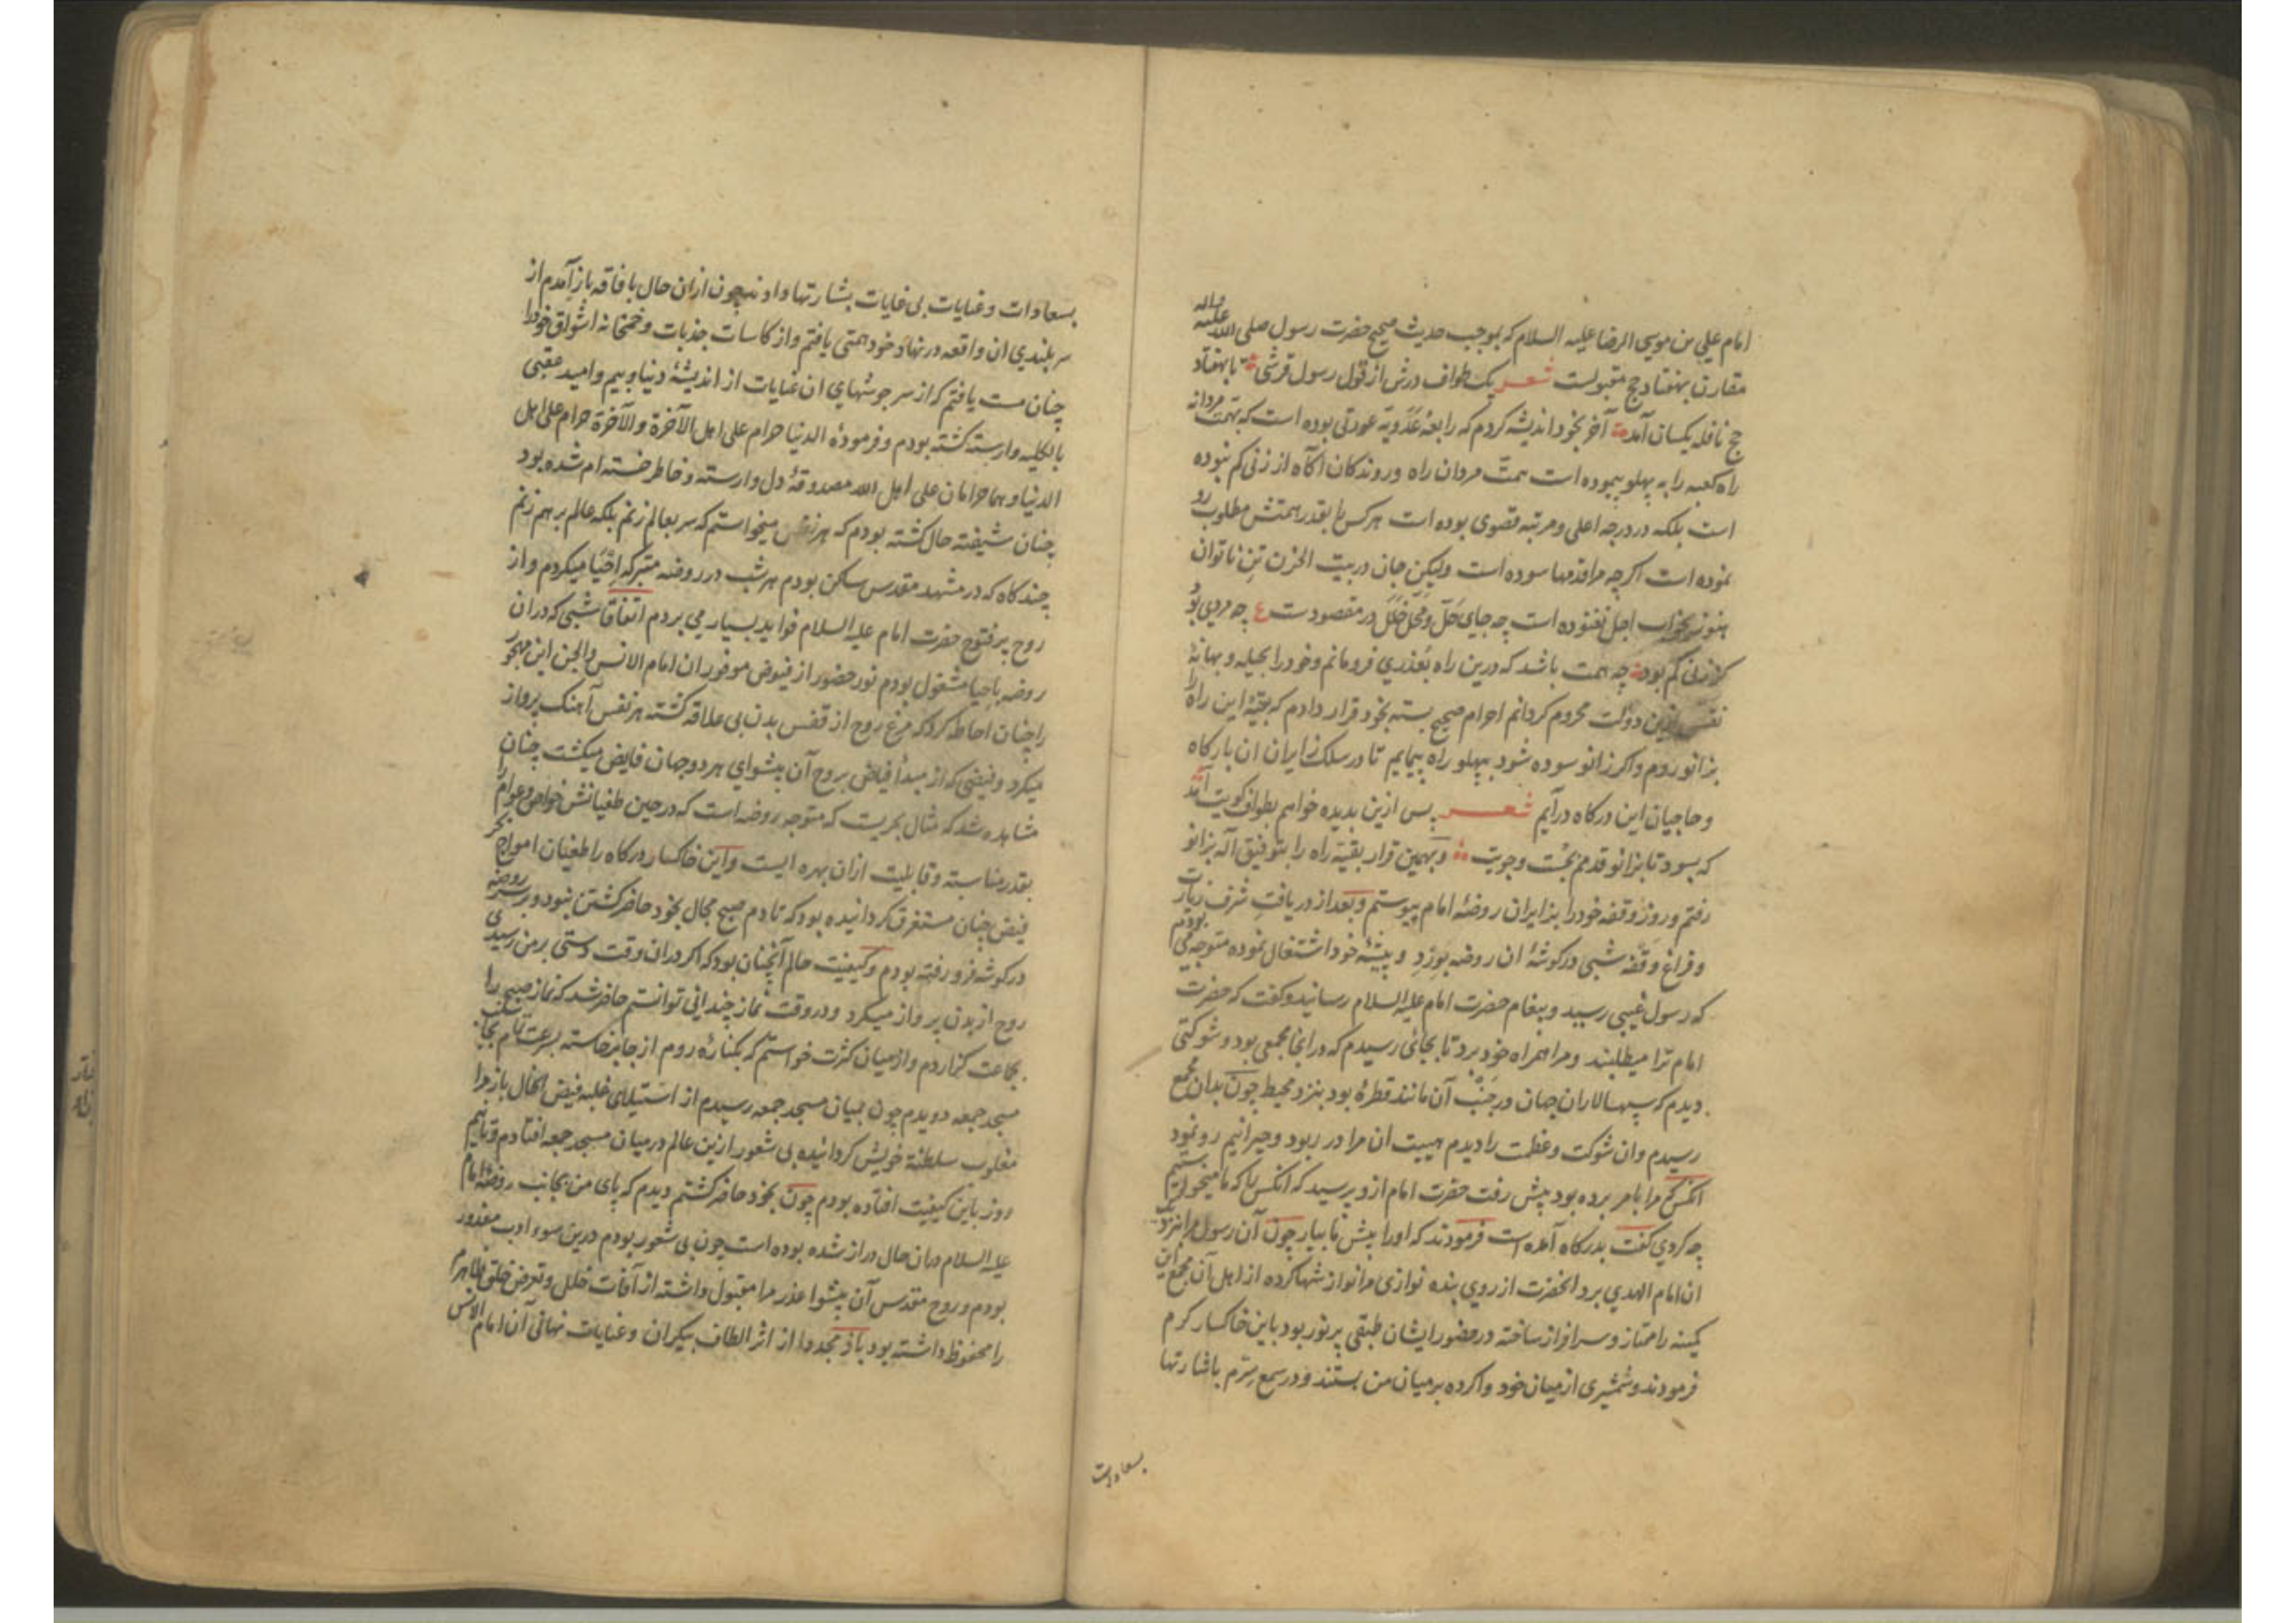 امام علی بن موسی الرضا علیه السلام که بموجب حدیث صحیح حضرت رسول صلی الله علیه واله
مقارن بهفتاد حج مقبولست شعر یک طواف درش از قول رسول قرشی تا بهفتاد
حج نافله یکسان آمد آخر بخود اندیشه کردم که رابعهٔ عدویه عورتی بوده است که بهمت مردانه
راه کعبه را به پهلو پیموده است همت مردان راه و روندکان اکاه از زنی کم نبوده
است بلکه در درجه اعلی و مرتبه قصوی بوده است هر کس را بقدر همتش مطلوب رو
نموده است اکرچه مرا قدمها سوده است ولیکن جان در بیت الحزن تن ناتوان
هنوز بخواب اجل نغنوده است چه جای حل و محل خلل در مقصودست ع چه مردی بود
کز زنی کم بود چه همت باشد که درین راه بعذری فرومانم و خود را بحیله و بهانهٔ
نفس ازین دولت محروم کردانم احرام صحیح بسته بخود قرار دادم که بقیهٔ این راه را
بزانو روم و اکر زانو سوده شود بپهلو راه پیمایم تا در سلک زایران ان بارکاه
و حاجیان این درکاه درآیم شعر پس ازین بدیده خواهم بطواف کویت آمد
که بسود تا بزانو قدمم بجست وجویت و بهمین قرار بقیهٔ راه را بتوفیق اله بزانو
رفتم و روز وقفه خود را بزایران روضهٔ امام پیوستم و بعد از دریافت شرف زیارت
و فراغ وقفه شبی در کوشهٔ ان روضه بورد و پیشهٔ خود اشتغال نموده متوجه می بودم
که رسول غیبی رسید و پیغام حضرت امام علیه السلام رسانید و کفت که حضرت
امام ترا میطلبند و مرا همراه خود برد تا بجائی رسیدم که درانجا مجمعی بود و شوکتی
دیدم که سپهسالاران جهان در جنب آن مانند قطرهٔ بود بنزد محیط چون بدان مجمع
رسیدم وان شوکت و عظمت را دیدم هیبت ان مرا در ربود و حیرانیم رو نمود
انکس که مرا بامر برده بود پیش رفت حضرت امام ازو پرسید که انکس را که ما میخواستیم
چه کردی کفت بدرکاه آمده است فرمودند که او را پیش ما بیار چون آن رسول مرا بنزدیک
ان امام الهدی برد انحضرت از روی بنده نوازی مرا نوازشها کرده از اهل آن مجمع این
کمینه را ممتاز و سرافراز ساخته در حضور ایشان طبقی پر نور بود باین خاکسار کرم
فرمودند و شمشیری از میان خود واکرده بر میان من بستند و در سمع سرم باشارتها
بسعادات
بسعادات و عنایات بی غایات بشارتها دادند چون ازان حال بافاقه باز آمدم از
سربلندی ان واقعه در نهاد خود همتی یافتم و از کاسات جذبات و خمخانه اشواق خود را
چنان مست یافتم که از سر جوشهای ان عنایات از اندیشهٔ دنیا و بیم و امید عقبی
بالکلیه وارسته کشته بودم و فرمودهٔ الدنیا حرام علی اهل الآخرة والآخرة حرام علی اهل
الدنیا و هما حرامان علی اهل الله مصدوقهٔ دل وارسته و خاطر خسته ام شده بود
چنان شیفته حال کشته بودم که هر نفس میخواستم که سر بعالم زنم بلکه عالم برهم زنم
چند کاه که در مشهد مقدس ساکن بودم هر شب در روضه متبرکه احیا میکردم و از
روح پر فتوح حضرت امام علیه السلام فواید بسیار می بردم اتفاقا شبی که دران
روضه باحیا مشغول بودم نور حضور از فیوض موفور ان امام الانس والجن این مهجور
را چنان احاطه کرد که مرغ روح از قفس بدن بی علاقه کشته هر نفس آهنک پرواز
میکرد و فیضی که از مبدأ فیاض بروح آن پیشوای هر دو جهان فایض میکشت چنان
مشاهده شد که مثال بحریست که متوجه روضه است که در حین طغیانش خواص و عوام را
بقدر مناسبه و قابلیت ازان بهره ایست و این خاکسار درکاه را طغیان امواج بحر
فیض چنان مستغرق کردانیده بود که تا دم صبح مجال بخود حاضر کشتن نبود و بر سر روضه
در کوشه فرو رفته بودم و کیفیت حالم آنچنان بود که اکر دران وقت دستی بر من رسیدی
روح از بدن پرواز میکرد و در وقت نماز چندانی توانستم حاضر شد که نماز صبح را
بجماعت کزاردم و از میان کثرت خواستم که بکنارهٔ روم از جا برخاسته بسرعت تمام بجانب
مسجد جمعه دویدم چون بمیان مسجد جمعه رسیدم از استیلای غلبه فیض الحال باز مرا
مغلوب سلطنة خویش کردانیده بی شعور ازین عالم در میان مسجد جمعه افتادم و تا نیم
روز باین کیفیت افتاده بودم چون بخود حاضر کشتم دیدم که پای من بجانب روضهٔ امام
علیه السلام دران حال دراز شده بوده است چون بی شعور بودم درین سوء ادب معذور
بودم و روح مقدس آن پیشوا عذر مرا مقبول داشته از آفات خلل و تعرض خلق ظاهر مرا
را محفوظ داشته بود باز مجددا از اثر الطاف بیکران و عنایات نهانی آن امام الانس